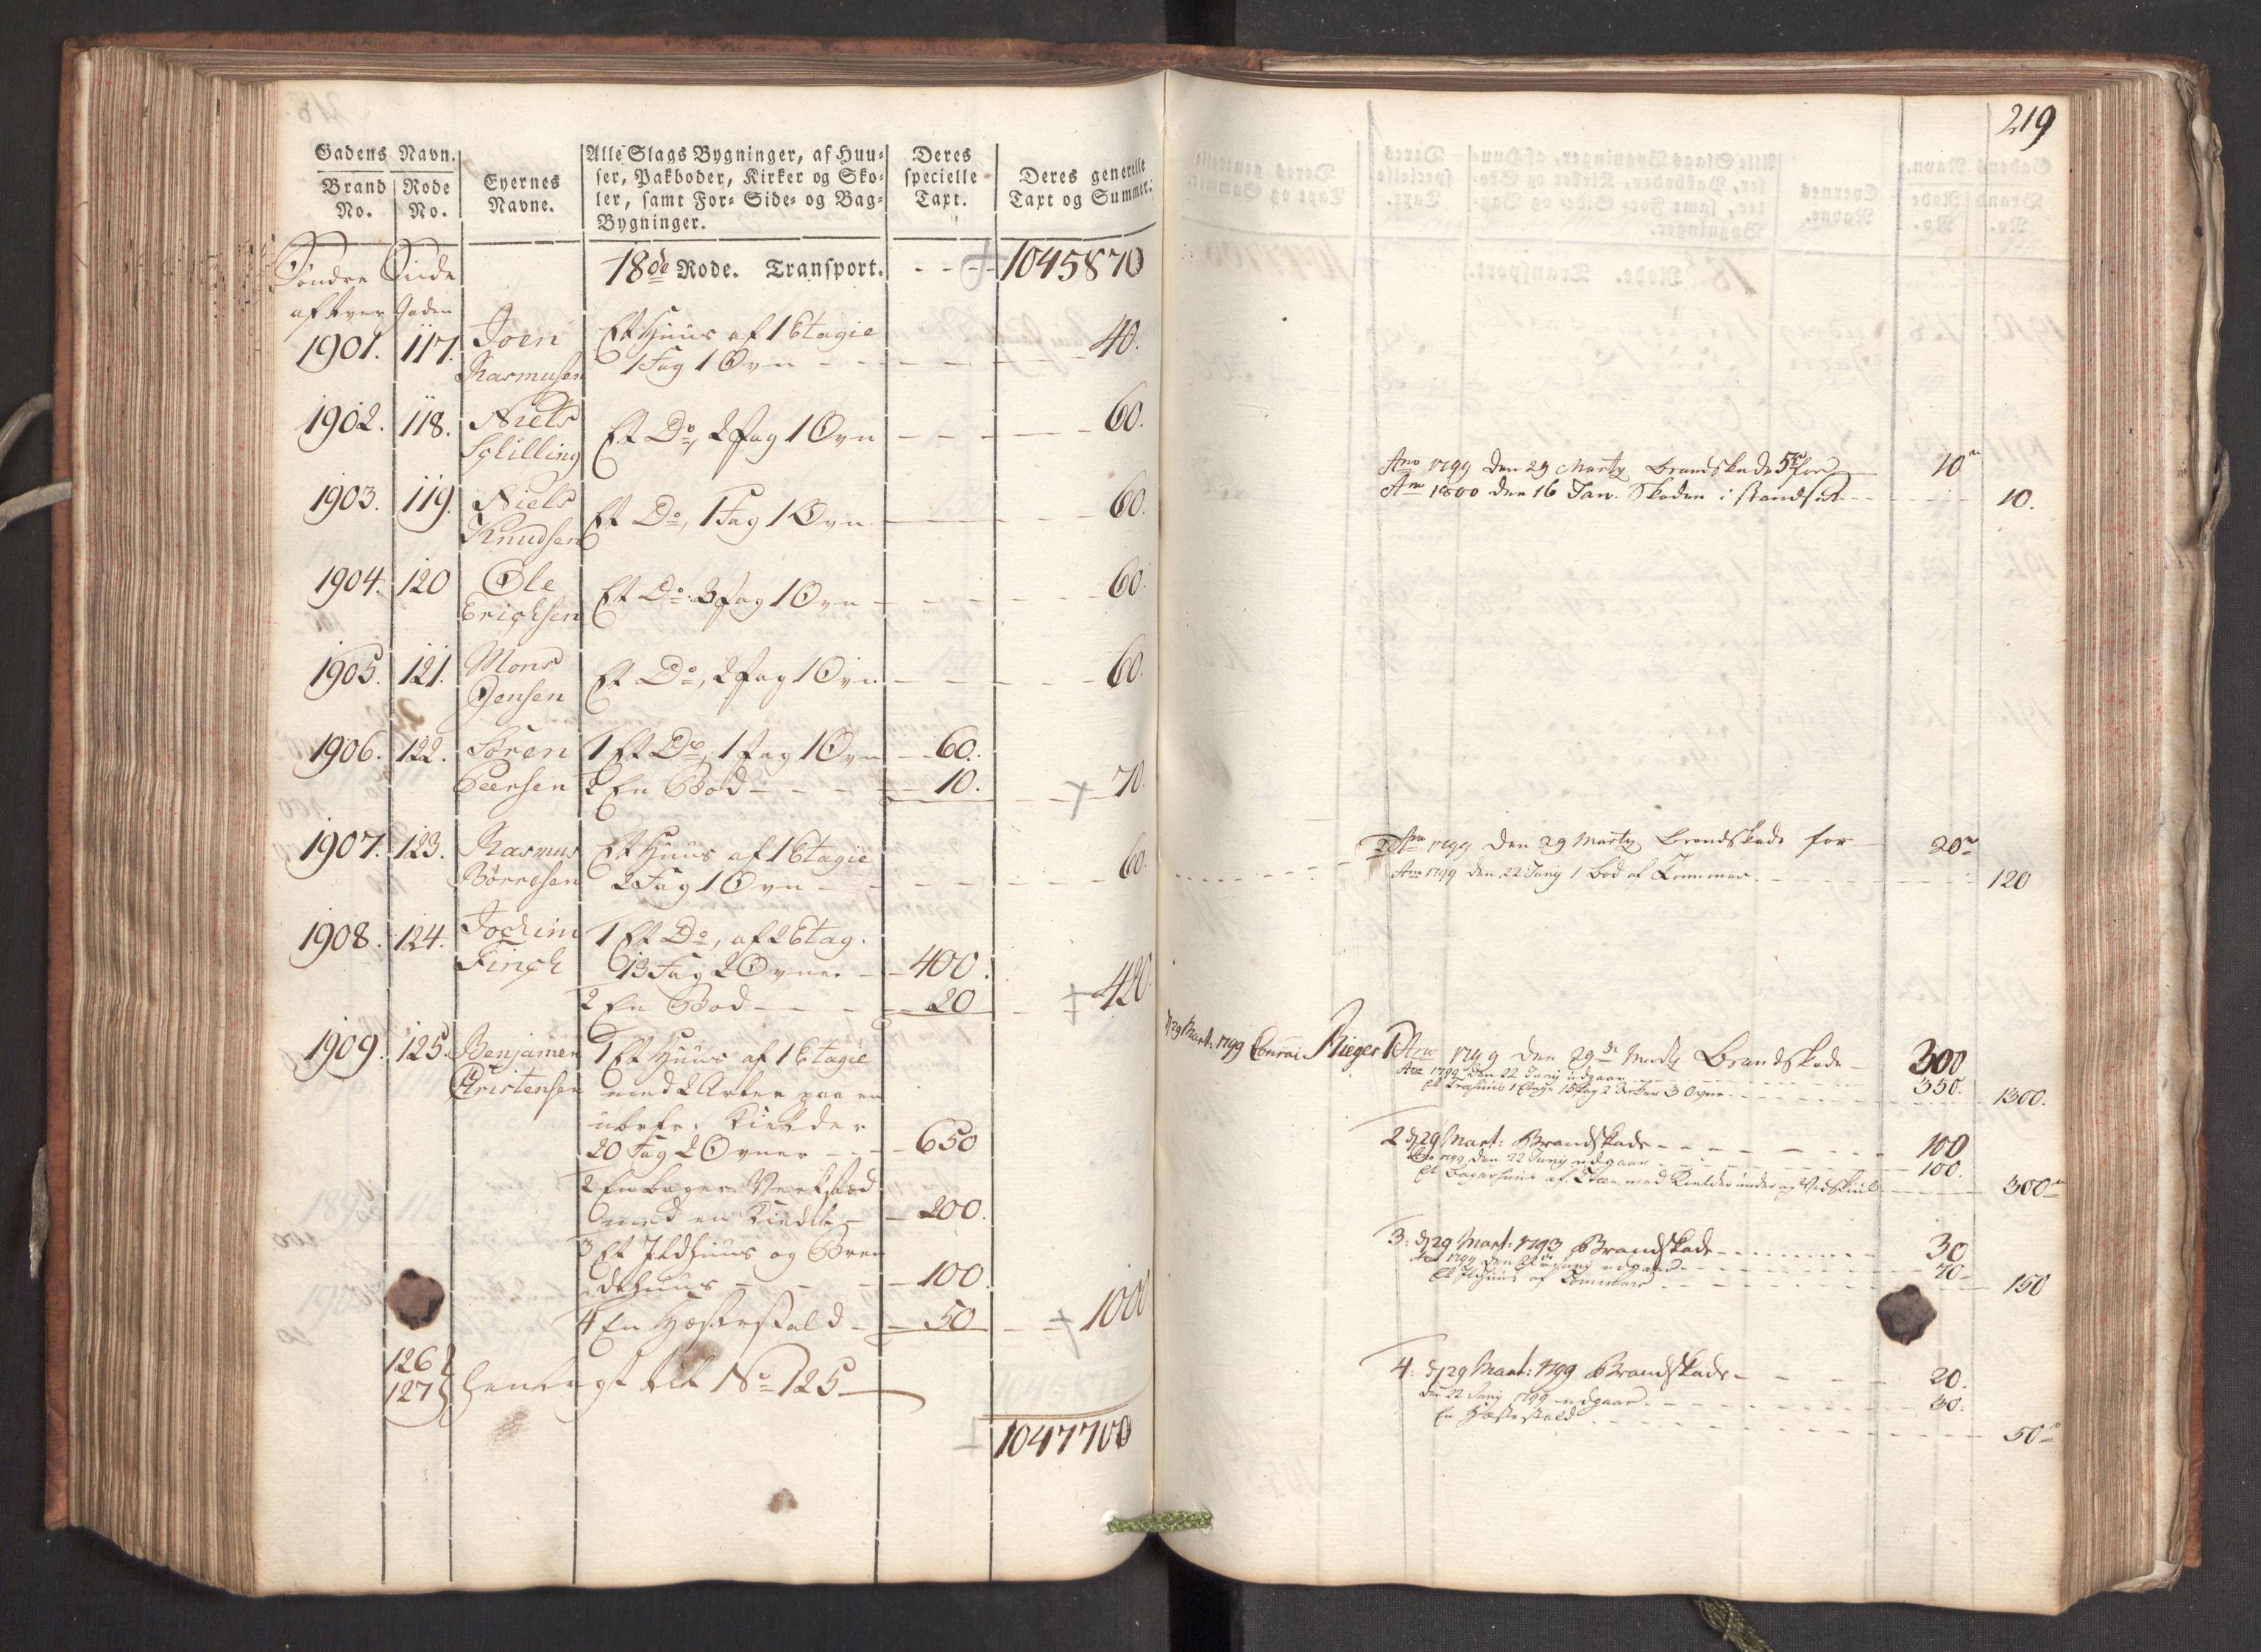 Gadens Navn.
Brand No. Rode No.
Eyernes Navne.
Alle Slags Bygninger, af Huu-
ser, Pakboder, Kirker og Sko-
ler, samt For- Side- og Bag-
Bygninger.
Deres specielle Taxt.
Deres generelle Taxt og Summer.
Søndre Siide
af Øvre Gaden
18de Rode. Transport. - - - 1045870
1901. 117. Joen Et Huus af 1 Etagie
Rasmusen 1 Fag 1 Ovn - - - 40.
1902. 118. Niels
Schilling Et Do, 2 Fag 1 Ovn - - - 60.
1903. 119. Niels
Knudsen Et Do, 1 Fag 1 Ovn - - - 60.
1904. 120 Ole
Erichsen Et Do. 3 Fag 1 Ovn - - - 60.
1905. 121. Mons
Jensen Et Do, 2 Fag 1 Ovn - - - 60.
1906. 122. Søren 1 Et Do, 1 Fag 1 Ovn - 60.
Peersen 2 En Bod - - - 10. - - 70.
1907. 123. Rasmus Et Huus af 1 Etagie
Børresen 2 Fag 1 Ovn - - - 60.
1908. 124. Jochim 1 Et Do, af 2 Etag.
Finch 13 Fag 2 Ovner - 400.
2 En Bod - - - 20 - 420.
1909. 125. Benjamen 1 Et Huus af 1 Etagie
Christensen med 2 Arker paa en
Kielder
20 Fag 2 Ovner - - 650
2 En bager Verksted
med en Kielder - 200.
3 Et Ildhuus og Bren
dehuus - - - 100.
4 En Hæstestald - 50 - - 1000
126
127 henlagt til No 125
1047700
219
Ano 1799 den 29 Marty Brandskade for 10
Ao 1800 den 16 Jan. Skaden i standsat - - - 10.
2 Ano 1799 den 29 Marty Brandskade for 20
Ano 1799 den 22 Juny 1 bod af Tømmer - - - 120
d 29 Mart. 1799 Conrai Rieger 1 Ano 1799 den 29de Marty Brandskade - 300
Ano 1799 den 22 Juny udgaar - - - 350.
Et Huus 1 Etage 15 Fag 2 Arker 3 Ovne - - - 1300.
2 d 29 Mart: Brandskade - - - 100
Ano 1799 den 22 Juny udgaar - - - 100.
Et Bagerhuus af med Kielder under og Vedskiul - - - 300
3: d 29 Mart: 1793 Brandskade - - - 30
Ano 1799 den 22de Juny udgaar - - - 70
Et Ildhuus af Tømmer - - - 150
4: d 29 Mart: 1799 Brandskade - - - 20.
den 22 Juny 1799 udgaar - - - 30.
En Hæstestald - - - 50